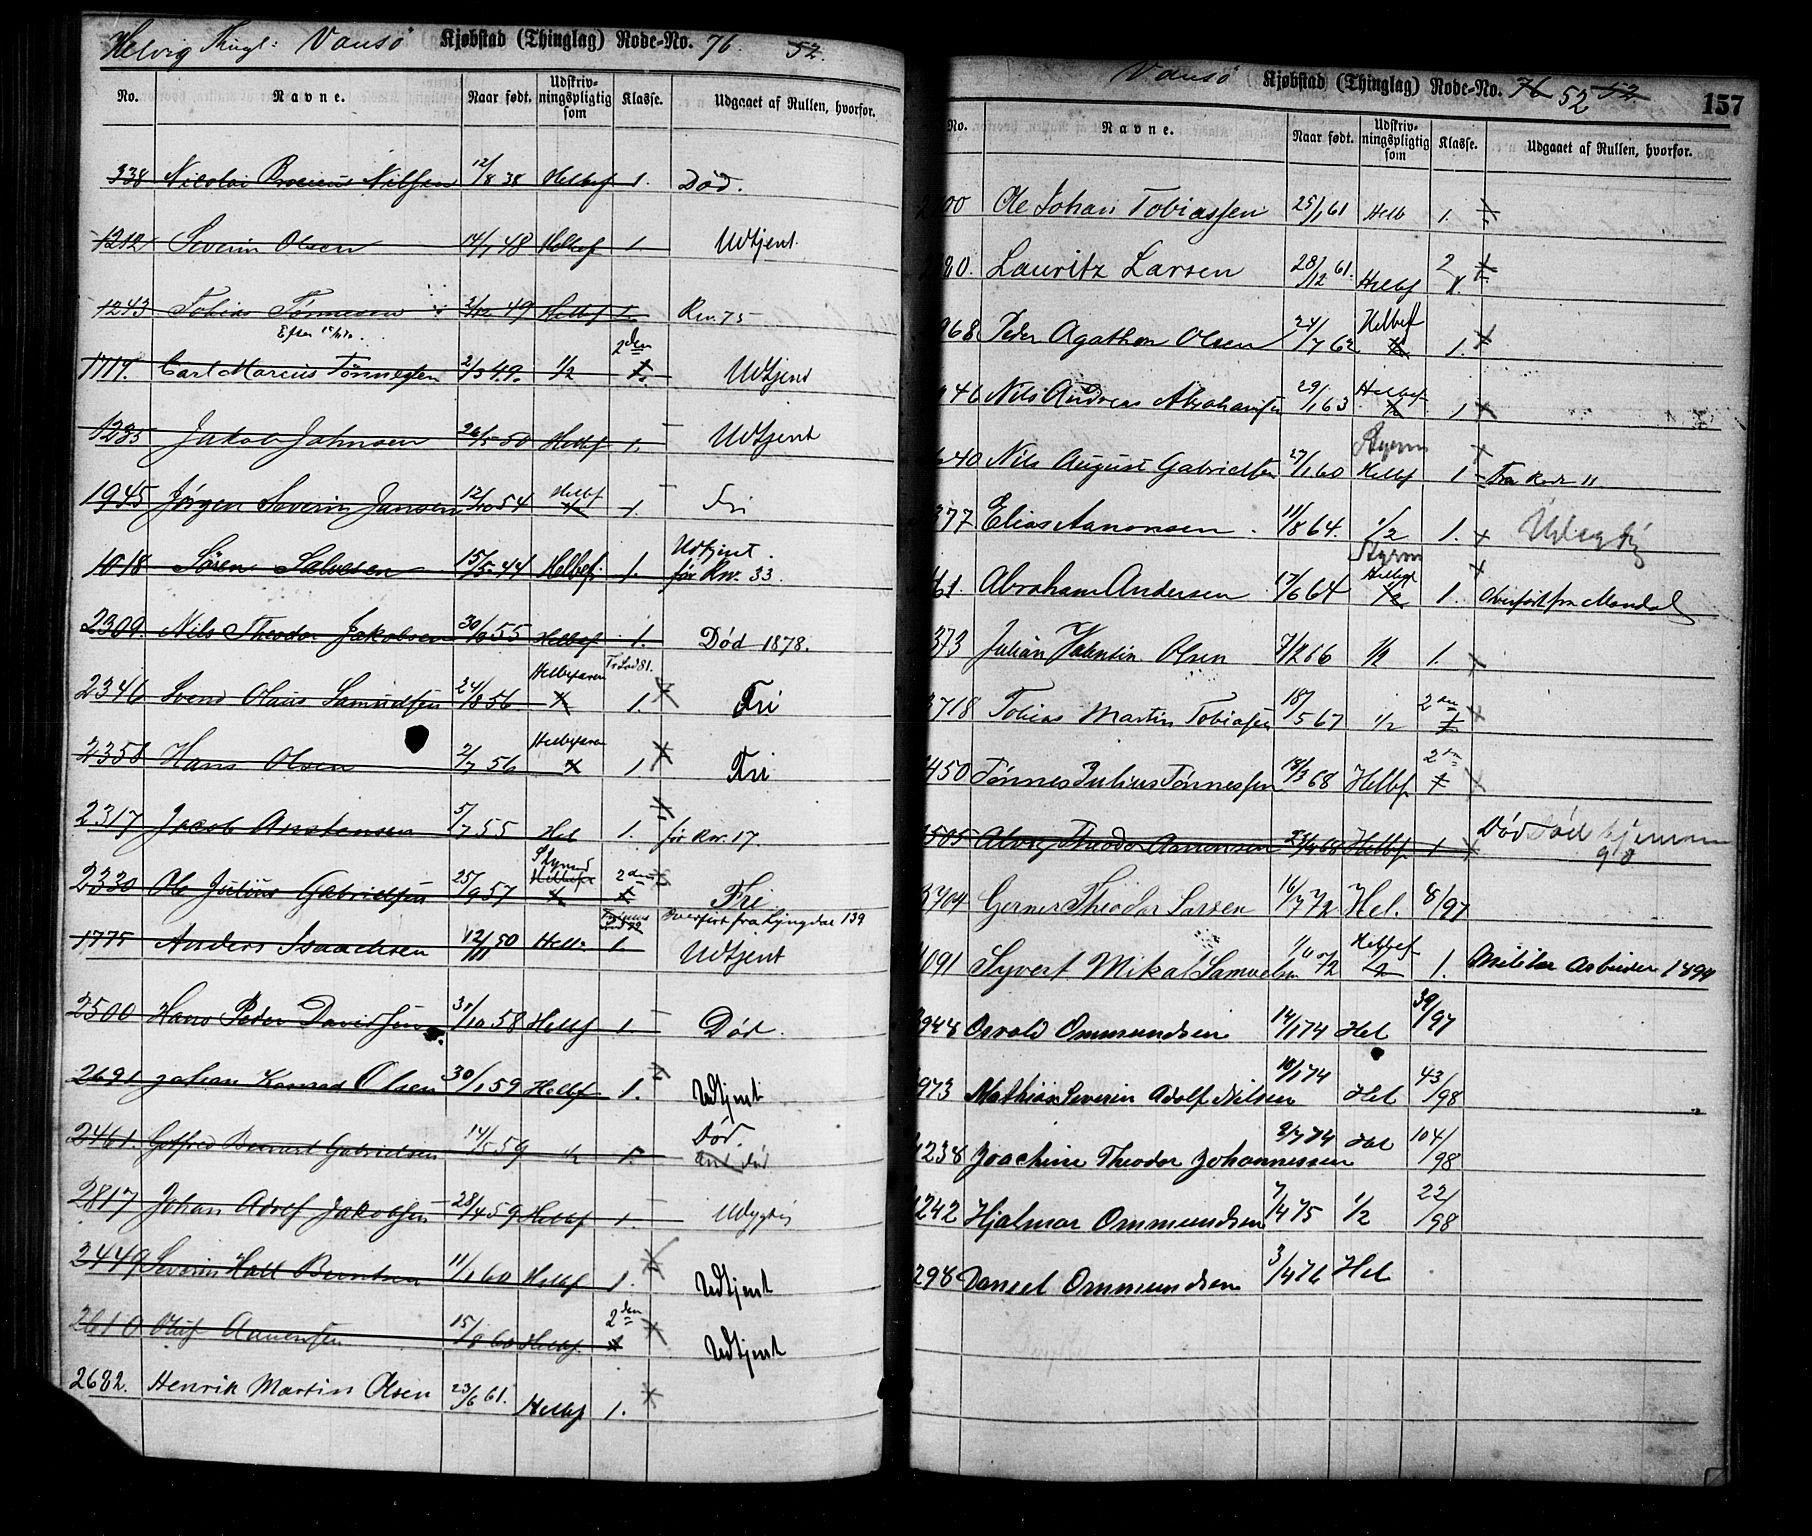 Helvig Thingl: Vansö Kjøbstad (Thinglag) Rode-No. 76. 52.
No. Navne. Naar født. Udskriv-ningspligtig som Klasse. Udgaaet af Rullen, hvorfor.
338 Nicolai Nilsen 12/8 38 Helbef 1. Død.
1212 Severin Olsen 14/1 48 Helbef 1. Udtjent.
1243 Tobias Tønnesen 49 Helbf 1. Rev. 75
1719. Carl Marcus Tønnessen 2/3 49. 1/2 2den 1. Udtjend
1285 Jakob Johnsen 26/5 50 Helbf 1. Udtjent
1945 Jørgen Severin Jansen 12/10 54 Helbf 1. Fri
1018 Sören Salvesen 15/5 44 Helbef. 1. Udtjent. før Rw. 33.
2309. Nils Theodor Jakobsen 30/9 55 Helbef 1. Død 1878.
2346 Svend Olaus Samuelsen 24/8 56 Helbefaren 1. Fri
2358 Hans Olsen 2/7 56 Helbefaren 1 Fri
2317 Jacob Anstensen 5/7 55 Hel 1. før Rw. 17.
2330 Ole Julius Gabrielsen 25/9 57 Styrmd Helbef 2den Fri
Overført fra Lyngdal 139
1775 Anders Isaachsen 12/11 50 Helb. 1. Udtjent
2500 Hans Peder Davidsen 31/10 58 Helbf 1. Død.
2691 Johan Konrad Olsen 30/1 59 Helbf 1. Udtjent
2461. Gotfred Bernert Gabrielsen 14/5 59 1. Død.
2817 Johan Adolf Jakobsen 28/4 59 Helbf 1. Udygtig
2449 Severin Hall Berntsen 11/1 60 Helbf 1. Udtjent
2610 Oluf Aanensen 15/8 60 Helbf. 2den Udtjent
2682. Henrik Martin Olsen 23/6 61. Helbf 1.
Vansö Kjøbstad (Thinglag) Rode-No. 76 52 52 157
No. Navne. Naar født. Udskriv-ningspligtig som Klasse. Udgaaet af Rullen, hvorfor.
00 Ole Johan Tobiassen 25/1 61 Helb 1.
80. Lauritz Larsen 28/12 61. Helbf 2
968 Peder Agathon Olsen 24/7 62 Helbef 1.
46 Nils Andreas Abrahamsen 29/1 63 Helbef 1
640 Nils August Gabrielsen 27/1 60 Styrm Helbf 1 Fra Rode 11
377 Elias Aanonsen. 11/8 64. 1/2 1. Udygtig
61. Abraham Andersen 17/6 64 Styrm Helbef 1/2 1. Overført fra Mandal
373 Julian Valentin Olsen 7/2 66 1/2 1.
3718 Tobias Martin Tobiasen 18/5 67 1/2 2den
450 Tønnes Julius Tønnessen 18/3 68 Helbf 2den
505 Alvig Theodor Aanonsen 68 Helbf 1 Død
3704 Gerner Theodor Larsen 16/7 72 Hel. 8/97
091 Syvert Mikal Samuelsen 72 Helbef 1/2 1. Militær Arbeider 1894
948 Osvald Ommundsen 14/1 74 Hel 39/97
973 Mathias Severin Adolf Nilsen 10/1 74 Hel 43/98
238 Joachim Theodor Johannessen 8/7 74 Hel 104/98
242 Hjalmar Ommundsen 7/4 75 1/2 22/98
298 Daniel Ommundsen 3/4 76 Hel